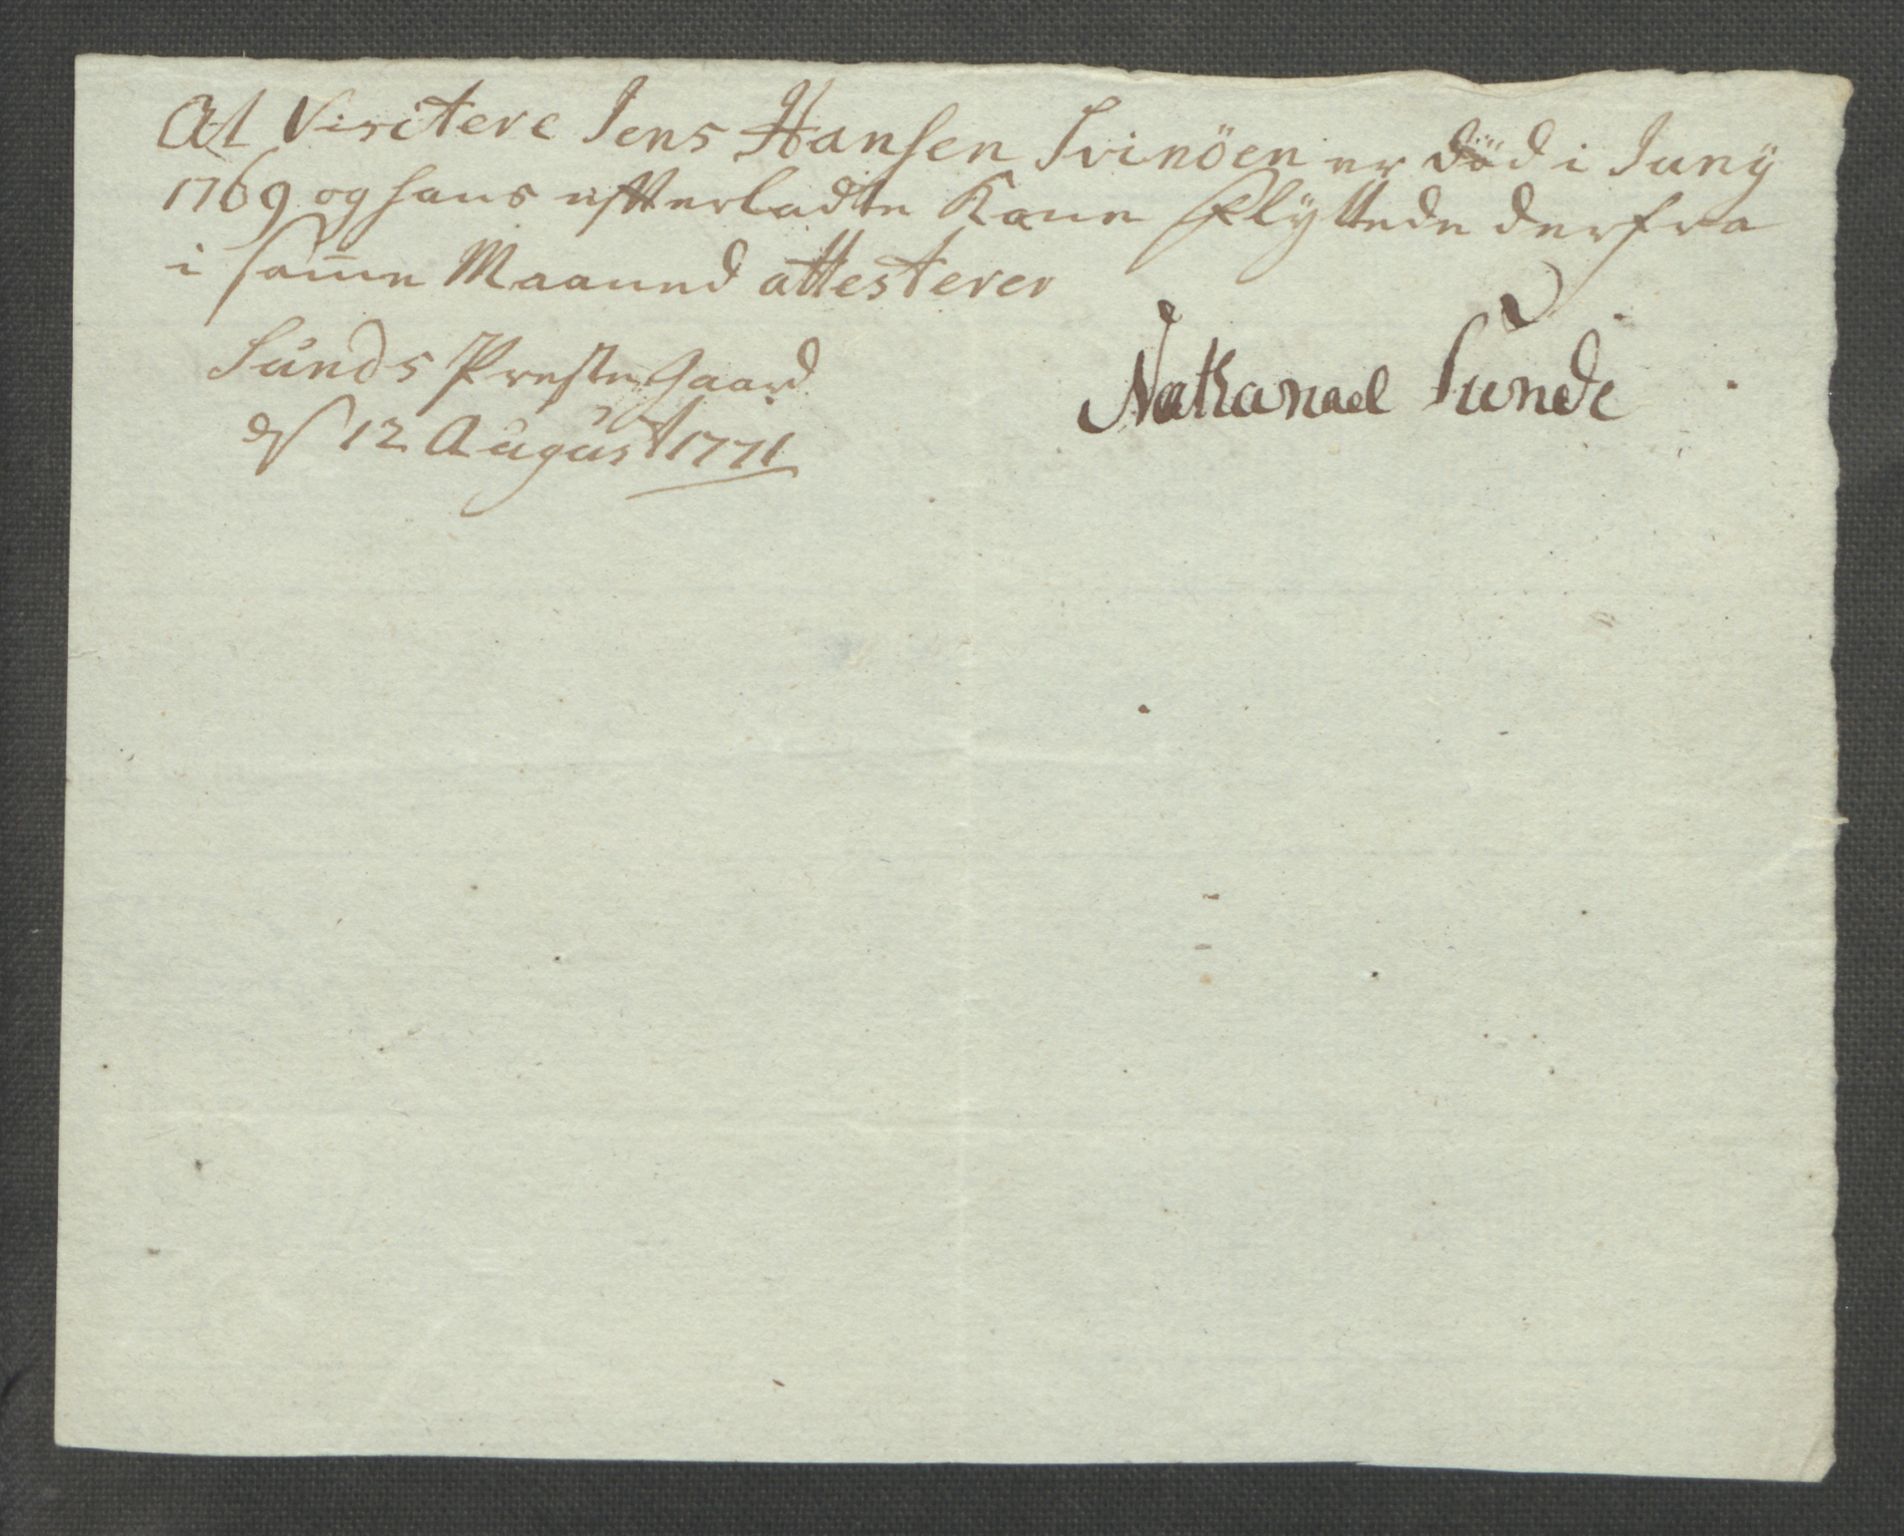 At Visitere Jens Hansen Svinöen er död i Juny
1769 og hans efterladte Kone Flÿttede derfra
i samme Maaned attesterer
Sunds PresteGaard
d 12 August 1771
Nathanael Sunde